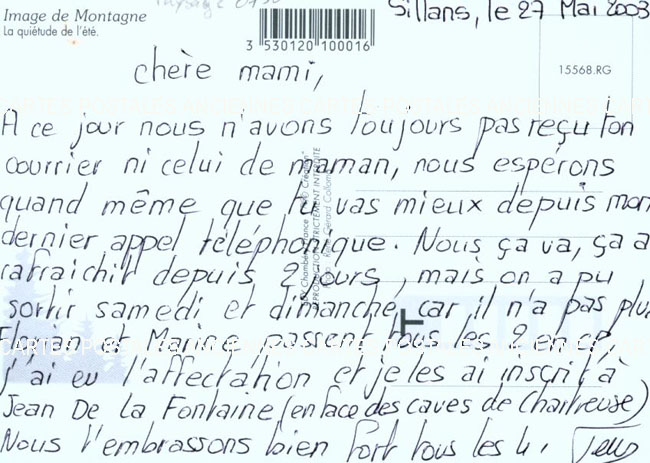 Image de Montagne
La quiétude de l'été.
3 530120 100016
Sillans, le 27 Mai 2003
15568.RG
chère mami,
A ce jour nous n'avons toujours pas reçu ton
courrier ni celui de maman, nous espérons
quand même que tu vas mieux depuis mon
dernier appel téléphonique. Nous ça va, ça a
rafraichit depuis 2 jours, mais on a pu
sortir samedi et dimanche, car il n'a pas plu
et passent tous les 2 en
j'ai eu l'affectation et je les ai inscrit à
Jean De La Fontaine (en face des caves de Chartreuse)
Nous t'embrassons bien fort tous les 4.
CARTES POSTALES ANCIENNES